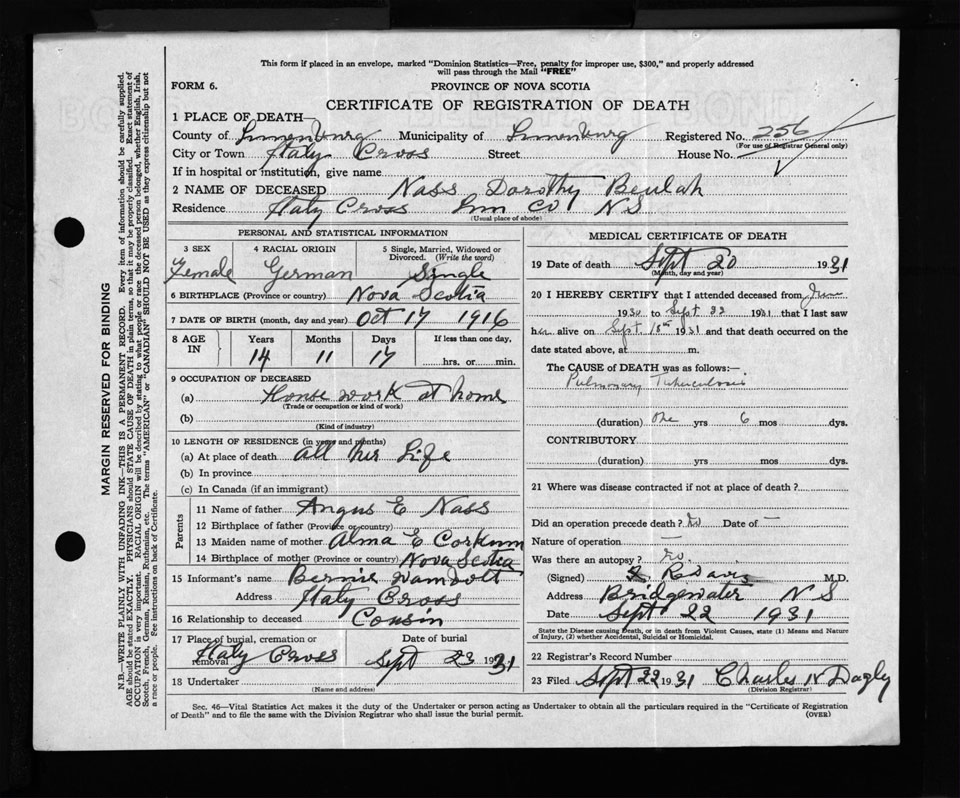 This form if placed in an envelope, marked "Dominion Statistics—Free, penalty for improper use, $300," and properly addressed
will pass through the Mail "FREE"
FORM 6. PROVINCE OF NOVA SCOTIA
CERTIFICATE OF REGISTRATION OF DEATH
1 PLACE OF DEATH—
County of Lunenburg Municipality of Lunenburg Registered No. 256
(For use of Registrar General only)
City or Town Italy Cross Street House No.
If in hospital or institution, give name
2 NAME OF DECEASED Nass Dorothy Beulah
Residence Italy Cross Lun Co NS
(Usual place of abode)
PERSONAL AND STATISTICAL INFORMATION
3 SEX 4 RACIAL ORIGIN 5 Single, Married, Widowed or
Divorced. (Write the word)
Female German Single
6 BIRTHPLACE (Province or country) Nova Scotia
7 DATE OF BIRTH (month, day and year) Oct 17 1916
8 AGE IN Years Months Days If less than one day,
14 11 17 hrs. or min.
9 OCCUPATION OF DECEASED
(a) House work at home
(Trade or occupation or kind of work)
(b)
(Kind of industry)
10 LENGTH OF RESIDENCE (in years and months)
(a) At place of death all her Life
(b) In province
(c) In Canada (if an immigrant)
Parents
11 Name of father Angus E Nass
12 Birthplace of father (Province or country)
13 Maiden name of mother Alma E Corkum
14 Birthplace of mother (Province or country) Nova Scotia
15 Informant's name Bernie Wambolt
Address Italy Cross
16 Relationship to deceased Cousin
17 Place of burial, cremation or removal Italy Cross Date of burial Sept 23 1931
18 Undertaker
(Name and address)
MEDICAL CERTIFICATE OF DEATH
19 Date of death Sept 20 1931
(Month, day and year)
20 I HEREBY CERTIFY that I attended deceased from June
1930 to Sept 22 1931 that I last saw
her alive on Sept. 18th 1931 and that death occurred on the
date stated above, at m.
The CAUSE of DEATH was as follows:—
Pulmonary Tuberculosis
(duration) One yrs 6 mos dys.
CONTRIBUTORY
(duration) yrs mos dys.
21 Where was disease contracted if not at place of death?
Did an operation precede death? No Date of —
Nature of operation —
Was there an autopsy? No.
(Signed) R Davis M.D.
Address Bridgewater NS
Date Sept 22 1931
State the Disease causing Death, or in death from Violent Causes, state (1) Means and Nature
of Injury, (2) whether Accidental, Suicidal or Homicidal.
22 Registrar's Record Number
23 Filed Sept 22 1931 Charles N Dagly
(Division Registrar)
Sec. 46—Vital Statistics Act makes it the duty of the Undertaker or person acting as Undertaker to obtain all the particulars required in the "Certificate of Registration
of Death" and to file the same with the Division Registrar who shall issue the burial permit. (OVER)
MARGIN RESERVED FOR BINDING
N.B.—WRITE PLAINLY WITH UNFADING INK—THIS IS A PERMANENT RECORD. Every item of information should be carefully supplied.
AGE should be stated EXACTLY. PHYSICIANS should STATE CAUSE OF DEATH in plain terms, so that it may be properly classified. Exact statement of
OCCUPATION is very important. RACIAL ORIGIN will be described by stating to what people or race the deceased person belonged, whether English, Irish,
Scotch, French, German, Russian, Ruthenian, etc. The terms "AMERICAN" or "CANADIAN" SHOULD NOT BE USED as they express citizenship but not
a race or people. See instructions on back of Certificate.